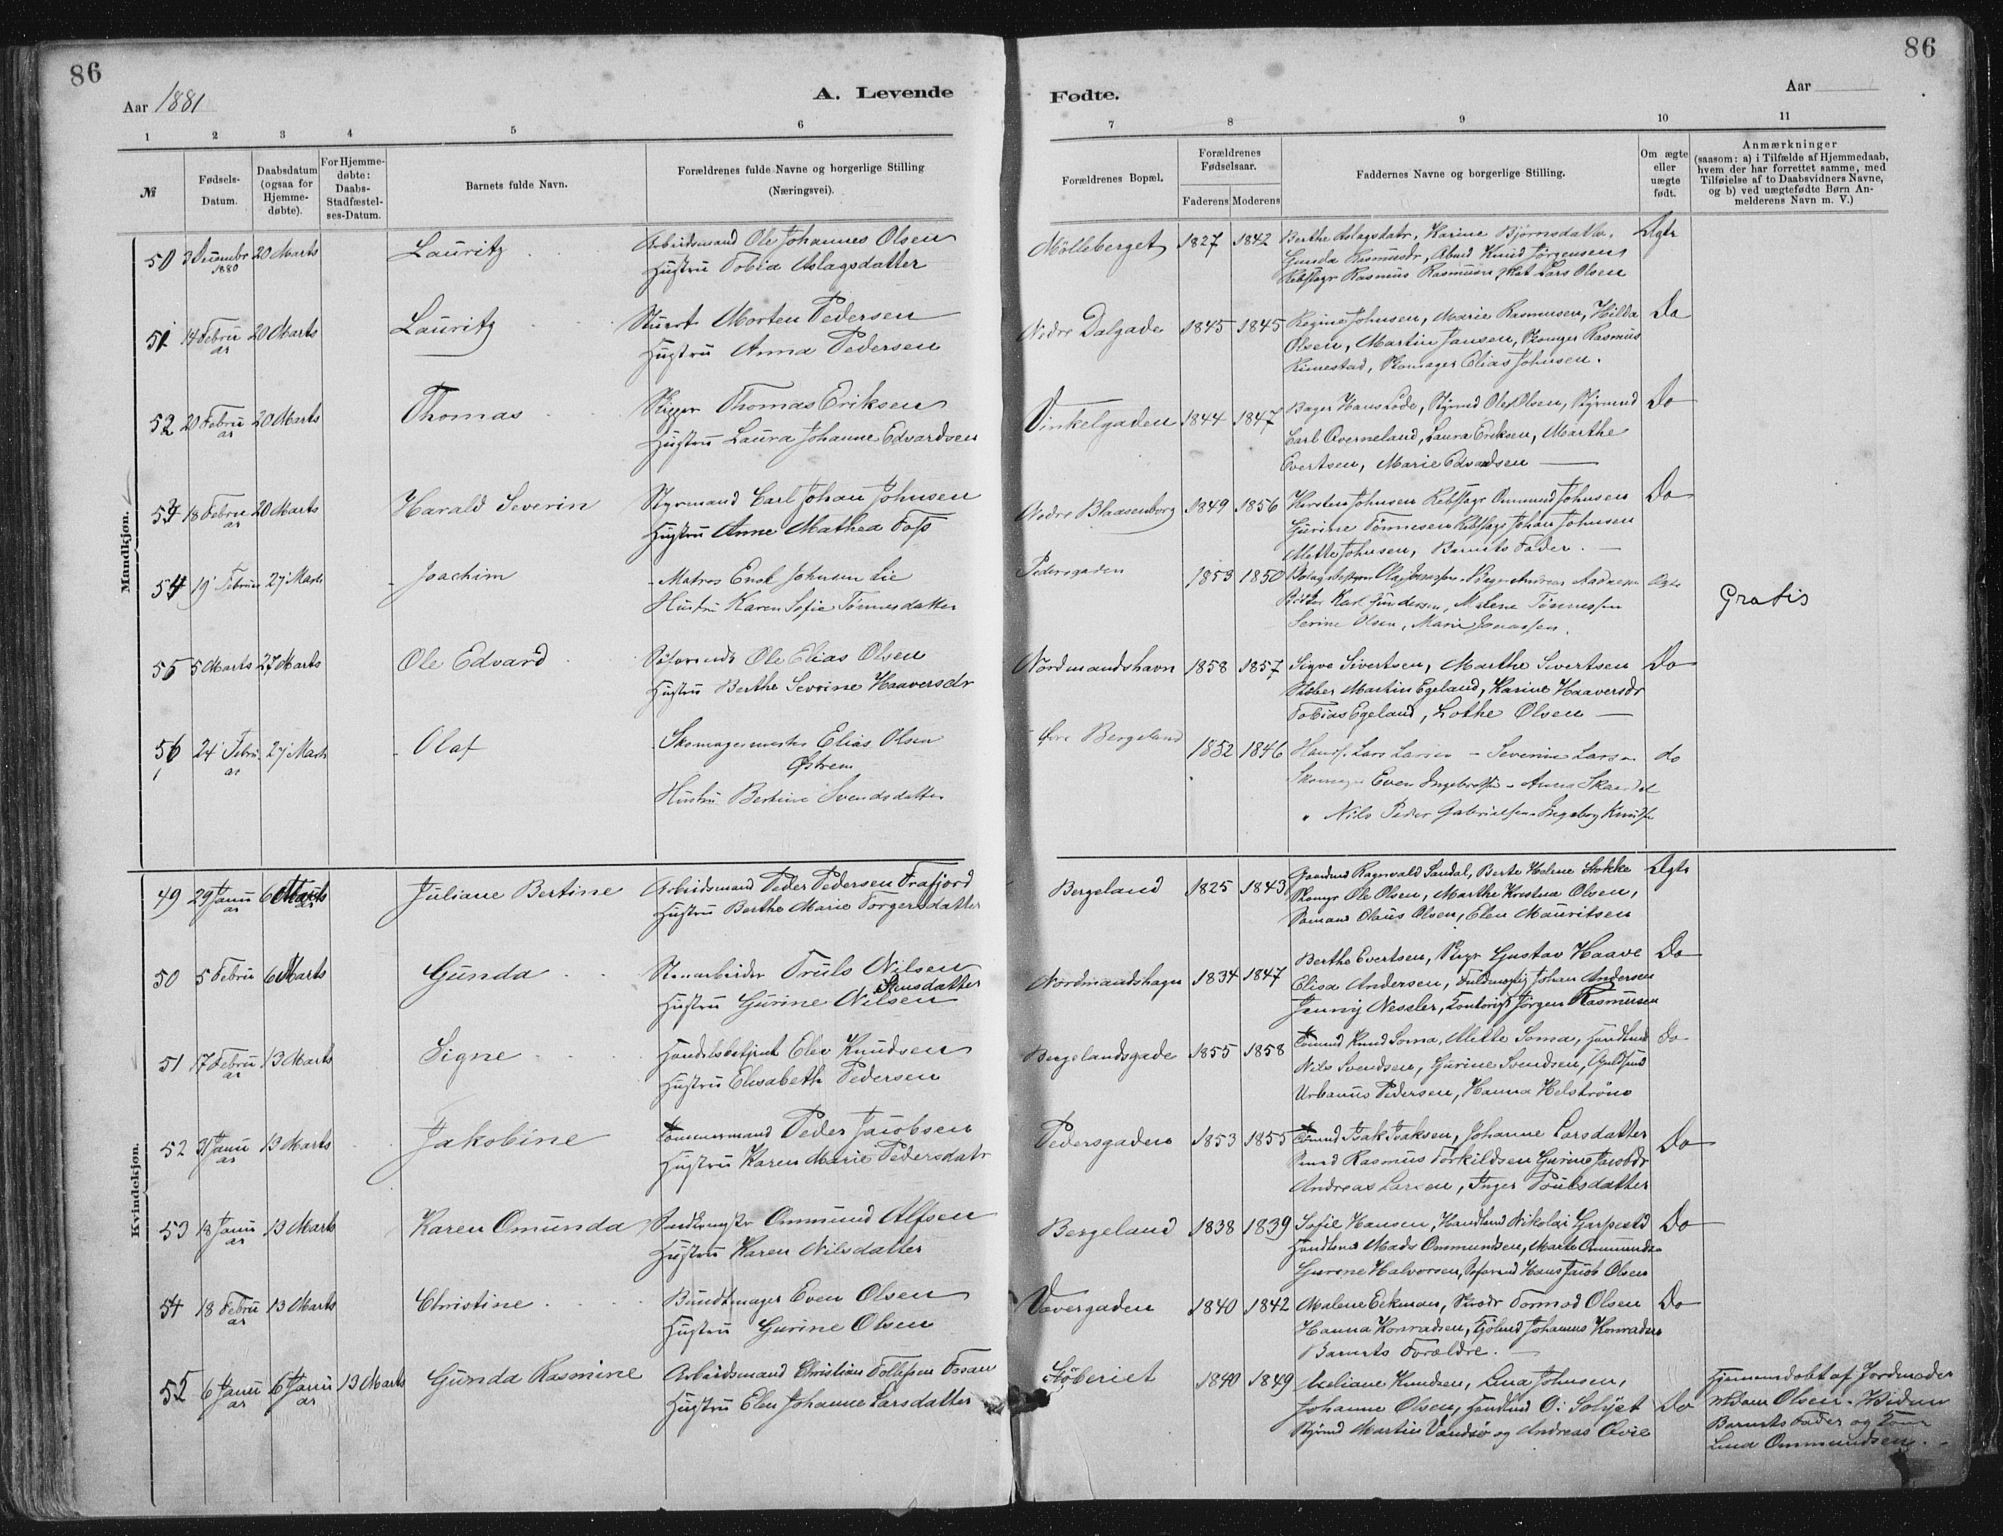 86
86
Aar 1881
A. Levende
Fødte.
Aar
1 2 3 4 5 6 7 8 9 10 11
№
Fødsels-Datum.
Daabsdatum (ogsaa for Hjemme-døbte).
For Hjemme-døbte: Daabs-Stadfæstel-ses-Datum.
Barnets fulde Navn.
Forældrenes fulde Navne og borgerlige Stilling (Næringsvei).
Forældrenes Bopæl.
Forældrenes Fødselsaar.
Faderens Moderens
Faddernes Navne og borgerlige Stilling.
Om ægte eller uægte født.
Anmærkninger (saasom: a) i Tilfælde af Hjemmedaab, hvem der har forrettet samme, med Tilføielse af to Daabsvidners Navne, og b) ved uægtefødte Børn Anmelderens Navn m. V.)
Mandkjøn.
50 3 Decembr 1880 20 Marts Lauritz Arbeidsmand Ole Johannes Olsen Mølleberget 1827 1842 Berthe Aslagsdatr, Karine Bjørnsdattr. Ægte
Hustru Tobia Aslagsdatter Gunda Rasmusdr, Abmd Knud Jørgensen
Rebslagr Rasmus Rasmusen, Mat Lars Olsen
51 14 Februar 20 Marts Lauritz Stuert Morten Pedersen Nedre Dalgade 1845 1845 Regine Johnsen, Marie Rasmusen, Hilda Do
Hustru Anna Pedersen Olsen, Martin Jansen, Skomager Rasmus
Rimestad, Skomager Elias Johnsen.
52 20 Februar 20 Marts Thomas Skipper Thomas Eriksen Vinkelgaden 1844 1847 Bager Hans Lode, Styrmd Ole Olsen, Styrmd Do
Hustru Laura Johanne Edvardsen Carl Overneland, Laura Eriksen, Marthe
Evertsen, Marie Edvardsen
53 18 Februar 20 Marts Harald Severin Styrmand Carl Johan Johnsen Nedre Blaasenborg 1849 1856 Karsten Johnsen Rebslagr Ommund Johnsen Do
Hustru Anne Mathea Foss Gurine Tønnesen Rebslagr Johan Johnsen
Mette Johnsen, Barnets Fader.
54 19 Februar 27 Marts Joachim Matros Enok Johnsen Lie Pedersgaden 1853 1850 Ægte
Hustru Karen Sofie Tønnesdatter Karl Gundersen, Malene Tønnessen
Serine Olsen, Marie Jonassen.
Gratis
55 5 Marts 27 Marts Ole Edvard Søfarende Ole Elias Olsen Nordmandshavn 1858 1857 Sigve Sivertsen, Marthe Sivertsen Do
Hustru Berthe Sevrine Haaversdr Støber Martin Egeland, Karine Haaversdr
Tobias Egeland, Lothe Olsen
56 24 Februar 27 Marts Olaf Skomagermester Elias Olsen Østrem Øvre Bergeland 1852 1846 Lars Larsen - Severine Larsen do
Hustru Bertine Svendsdatter Skomager Even Ingebretsen - Anna
" Nils Peder Gabrielsen - Ingeborg Knudsen
Kvindekjøn.
49 29 Januar 6 Marts Juliane Bertine Arbeidsmand Peder Pedersen Frafjord Bergeland 1825 1843 Gaardmd Ragnvald Sandal, Berte Helene Stokke Ægte
Hustru Berthe Marie Torgersdatter Skomgr Ole Olsen, Marthe Kristna Olsen,
Sømand Olaus Olsen, Elen Mauritsen
50 5 Februar 6 Marts Gunda Stenarbeider Truls Nilsen Nordmandshagen 1834 1847 Berthe Evertsen, Gustav Haave Do
Hustru Gurine Nilsen Stensdatter Elisa Andersen, Fuldmægtig Johan Andersen
Jenny Nessler, Kontorist Jørgen Rasmusen
51 17 Februar 13 Marts Signe Handelsbetjent Elev Knudsen Bergelandsgade 1855 1858 Tømmd Knud Soma, Mette Soma, Handlend Do
Hustru Elisabeth Pedersen Nils Svendsen, Gurine Svendsen,
Urbanus Pedersen, Hanna Helstrøm
52 31 Januar 13 Marts Jakobine Tømmermand Peder Jacobsen Pedersgaden 1853 1855 Tømd Isak Isaksen, Johanne Larsdatter Do
Hustru Karen Marie Pedersdatr Smed Rasmus Torkildsen Gurine Jacobdr
Andreas Larsen, Inger Poulsdatter
53 18 Januar 13 Marts Karen Omunda Ommund Alfsen Bergeland 1838 1839 Sofie Hansen, Handlend Nikolai Garpestd Do
Hustru Karen Nilsdatter Handlend Mads Ommundsen, Marte Ommundsen
Gurine Halvorsen, Søfarend Hans Jacob Olsen
54 18 Februar 13 Marts Christine Bundtmager Even Olsen Vævergaden 1840 1842 Malene Eekman, Skrædr Tormod Olsen Do
Hustru Gurine Olsen Hanna Konradsen, Johannes Konradsen
Barnets Forældre.
55 6 Januar 6 Januar 13 Marts Gunda Rasmine Arbeidsmand Christian Tollefsen Fosan Støberiet 1840 1849 Meliane Knudsen, Lena Johnsen, Do
Hustru Elen Johanne Larsdatter Johanne Olsen, Handlend O. Solyst
Styrmd Martin Vandsø og Andreas Øvie
Hjemmedøbt af Jordmoder
Madam Olsen. Vidner
Barnets Fader og
Lina Ommundsen.